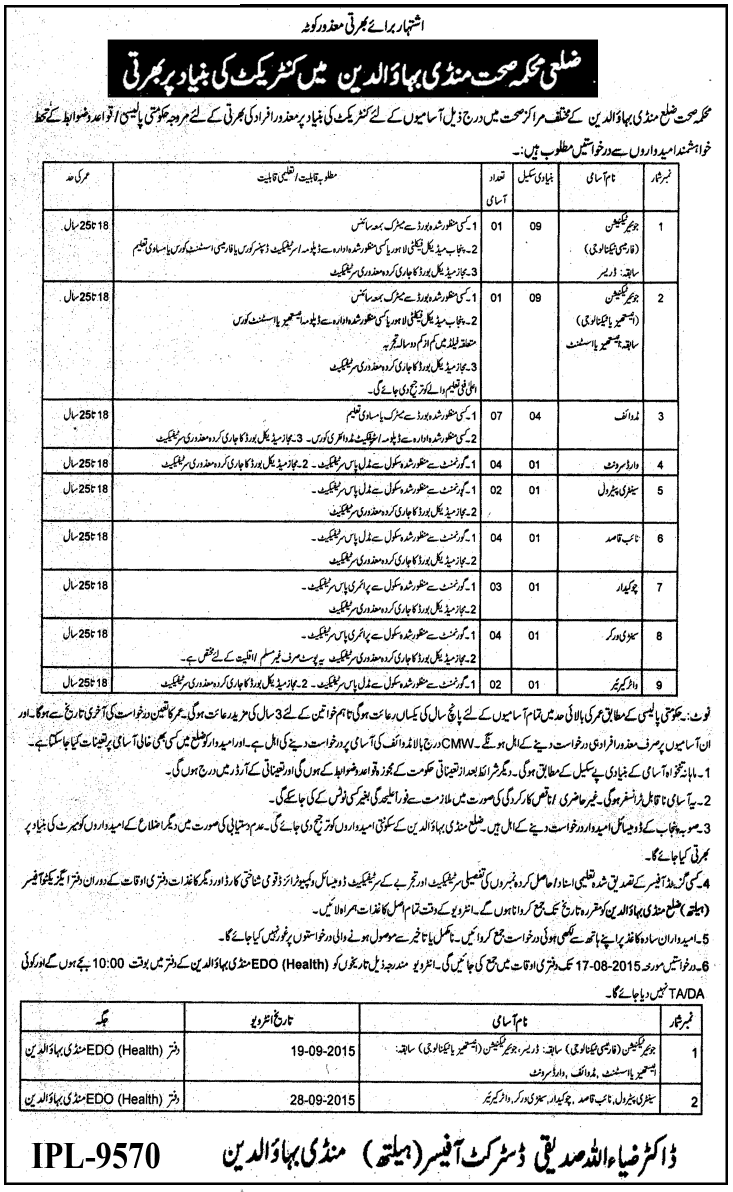 اشتہار برائے بھرتی معذور کوٹہ
ضلعی محکمہ صحت منڈی بہاؤالدین میں کنٹریکٹ کی بنیاد پر بھرتی
محکمہ صحت ضلع منڈی بہاؤالدین کے مختلف مراکز صحت میں درج ذیل آسامیوں کے لئے کنٹریکٹ کی بنیاد پر معذور افراد کی بھرتی کے لئے مروجہ حکومتی پالیسی/قواعد و ضوابط کے تحت
خواہشمند امیدواروں سے درخواستیں مطلوب ہیں:۔
نمبر شمار نام آسامی بنیادی سکیل تعداد آسامی مطلوبہ قابلیت/تعلیمی قابلیت عمر کی حد
1 جونیئر ٹیکنیشن 09 01 1۔ کسی منظور شدہ بورڈ سے میٹرک بمعہ سائنس 18 تا 25 سال
(فارمیسی ٹیکنالوجی) 2۔ پنجاب میڈیکل فیکلٹی لاہور یا کسی منظور شدہ ادارہ سے ڈپلومہ/سرٹیفکیٹ ڈسپنسر کورس یا فارمیسی اسسٹنٹ کورس یا مساوی تعلیم
سابقہ: ڈریسر 3۔ مجاز میڈیکل بورڈ کا جاری کردہ معذوری سرٹیفکیٹ
2 جونیئر ٹیکنیشن 09 01 1۔ کسی منظور شدہ بورڈ سے میٹرک بمعہ سائنس 18 تا 25 سال
(انیستھیزیا ٹیکنالوجی) 2۔ پنجاب میڈیکل فیکلٹی لاہور یا کسی منظور شدہ ادارہ سے ڈپلومہ انیستھیزیا اسسٹنٹ کورس
سابقہ: انیستھیزیا اسسٹنٹ متعلقہ فیلڈ میں کم از کم دو سالہ تجربہ
3۔ مجاز میڈیکل بورڈ کا جاری کردہ معذوری سرٹیفکیٹ
اعلیٰ فنی تعلیم والے کو ترجیح دی جائے گی۔
3 مڈوائف 04 07 1۔ کسی منظور شدہ بورڈ سے میٹرک یا مساوی تعلیم 18 تا 25 سال
2۔ کسی منظور شدہ ادارہ سے ڈپلومہ/سرٹیفکیٹ مڈوائفری کورس۔ 3۔ مجاز میڈیکل بورڈ کا جاری کردہ معذوری سرٹیفکیٹ
4 وارڈ سرونٹ 01 04 1۔ گورنمنٹ سے منظور شدہ سکول سے مڈل پاس سرٹیفکیٹ۔ 2۔ مجاز میڈیکل بورڈ کا جاری کردہ معذوری سرٹیفکیٹ 18 تا 25 سال
5 سینٹری پیٹرول 01 02 1۔ گورنمنٹ سے منظور شدہ سکول سے مڈل پاس سرٹیفکیٹ۔ 18 تا 25 سال
2۔ مجاز میڈیکل بورڈ کا جاری کردہ معذوری سرٹیفکیٹ
6 نائب قاصد 01 04 1۔ گورنمنٹ سے منظور شدہ سکول سے مڈل پاس سرٹیفکیٹ۔ 18 تا 25 سال
2۔ مجاز میڈیکل بورڈ کا جاری کردہ معذوری سرٹیفکیٹ
7 چوکیدار 01 03 1۔ گورنمنٹ سے منظور شدہ سکول سے پرائمری پاس سرٹیفکیٹ۔ 18 تا 25 سال
2۔ مجاز میڈیکل بورڈ کا جاری کردہ معذوری سرٹیفکیٹ
8 سینٹری ورکر 01 04 1۔ گورنمنٹ سے منظور شدہ سکول سے پرائمری پاس سرٹیفکیٹ۔ 18 تا 25 سال
2۔ مجاز میڈیکل بورڈ کا جاری کردہ معذوری سرٹیفکیٹ یہ پوسٹ صرف غیر مسلم/اقلیت کے لئے مختص ہے۔
9 واٹر کیریئر 01 02 1۔ گورنمنٹ سے منظور شدہ سکول سے مڈل پاس سرٹیفکیٹ۔ 2۔ مجاز میڈیکل بورڈ کا جاری کردہ معذوری سرٹیفکیٹ 18 تا 25 سال
نوٹ:۔ حکومتی پالیسی کے مطابق عمر کی بالائی حد میں تمام آسامیوں کے لئے پانچ سال کی یکساں رعائت ہوگی تاہم خواتین کے لئے 3 سال کی مزید رعائت ہوگی۔ عمر کا تعین درخواست کی آخری تاریخ سے ہوگا۔ اور
ان آسامیوں پر صرف معذور افراد ہی درخواست دینے کے اہل ہونگے۔ CMW درج بالا مڈوائف کی آسامی پر درخواست دینے کی اہل ہے۔ اور امیدوار کو ضلع میں کسی بھی خالی آسامی پر تعینات کیا جا سکتا ہے۔
1۔ ماہانہ تنخواہ آسامی کے بنیادی پے سکیل کے مطابق ہوگی۔ دیگر شرائط بعد از تعیناتی حکومت کے مجوزہ قواعد و ضوابط کے ہوں گی اور تعیناتی کے آرڈر میں درج ہوں گی۔
2۔ یہ آسامی ناقابل ٹرانسفر ہوگی۔ غیر حاضری/ناقص کارکردگی کی صورت میں ملازمت سے فوراً علیحدگی بغیر کسی نوٹس کے کی جا سکے گی۔
3۔ صوبہ پنجاب کے ڈومیسائل امیدوار درخواست دینے کے اہل ہیں۔ ضلع منڈی بہاؤالدین کے سکونتی امیدواروں کو ترجیح دی جائے گی۔ عدم دستیابی کی صورت میں دیگر اضلاع کے امیدواروں کو میرٹ کی بنیاد پر
بھرتی کیا جائے گا۔
4۔ کسی گزیٹڈ آفیسر کے تصدیق شدہ تعلیمی اسناد/حاصل کردہ نمبروں کی تفصیلی سرٹیفکیٹ اور تجربے کے سرٹیفکیٹ ڈومیسائل و کمپیوٹرائزڈ قومی شناختی کارڈ اور دیگر کاغذات دفتری اوقات کے دوران دفتر ایگزیکٹو آفیسر
(ہیلتھ) ضلع منڈی بہاؤالدین کو مقررہ تاریخ تک جمع کروانا ہوں گے۔ انٹرویو کے وقت تمام اصل کاغذات ہمراہ لائیں۔
5۔ امیدواران سادہ کاغذ پر اپنے ہاتھ سے لکھی ہوئی درخواست جمع کروائیں۔ نامکمل یا تاخیر سے موصول ہونے والی درخواستوں پر غور نہیں کیا جائے گا۔
6۔ درخواستیں مورخہ 17-08-2015 تک دفتری اوقات میں جمع کی جائیں گی۔ انٹرویو مندرجہ ذیل تاریخوں کو EDO (Health) منڈی بہاؤالدین کے دفتر میں بوقت 10:00 بجے ہوں گے اور کوئی
TA/DA نہیں دیا جائے گا۔
نمبر شمار نام آسامی تاریخ انٹرویو جگہ
1 جونیئر ٹیکنیشن (فارمیسی ٹیکنالوجی) سابقہ: ڈریسر، جونیئر ٹیکنیشن (انیستھیزیا ٹیکنالوجی) سابقہ: 19-09-2015 دفتر EDO (Health) منڈی بہاؤالدین
انیستھیزیا اسسٹنٹ، مڈوائف، وارڈ سرونٹ
2 سینٹری پیٹرول، نائب قاصد، چوکیدار، سینٹری ورکر، واٹر کیریئر 28-09-2015 دفتر EDO (Health) منڈی بہاؤالدین
ڈاکٹر ضیاء اللہ صدیقی ڈسٹرکٹ آفیسر (ہیلتھ) منڈی بہاؤالدین IPL-9570